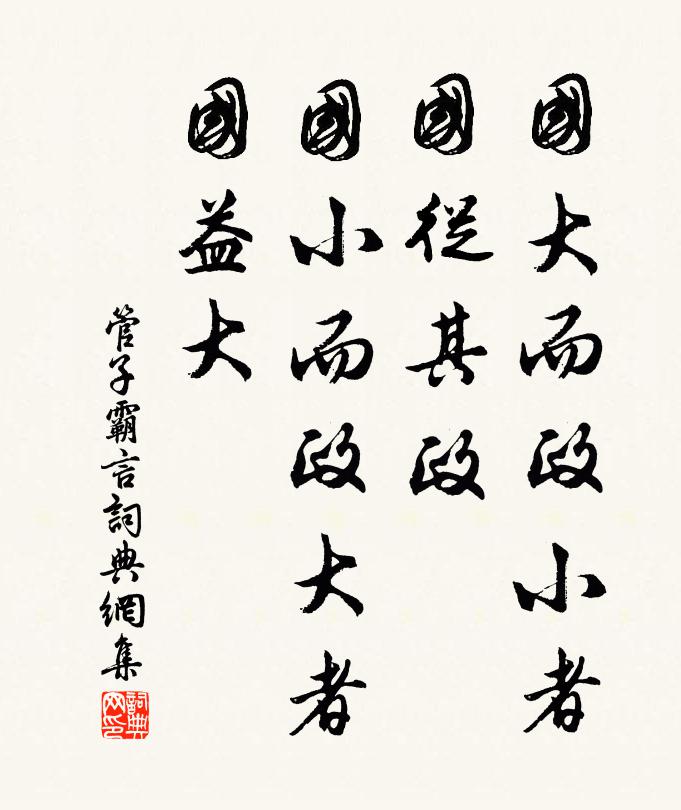 國大而政小者
國從其政
國小而政大者
國益大
管子霸言詞典網集
詞典網印